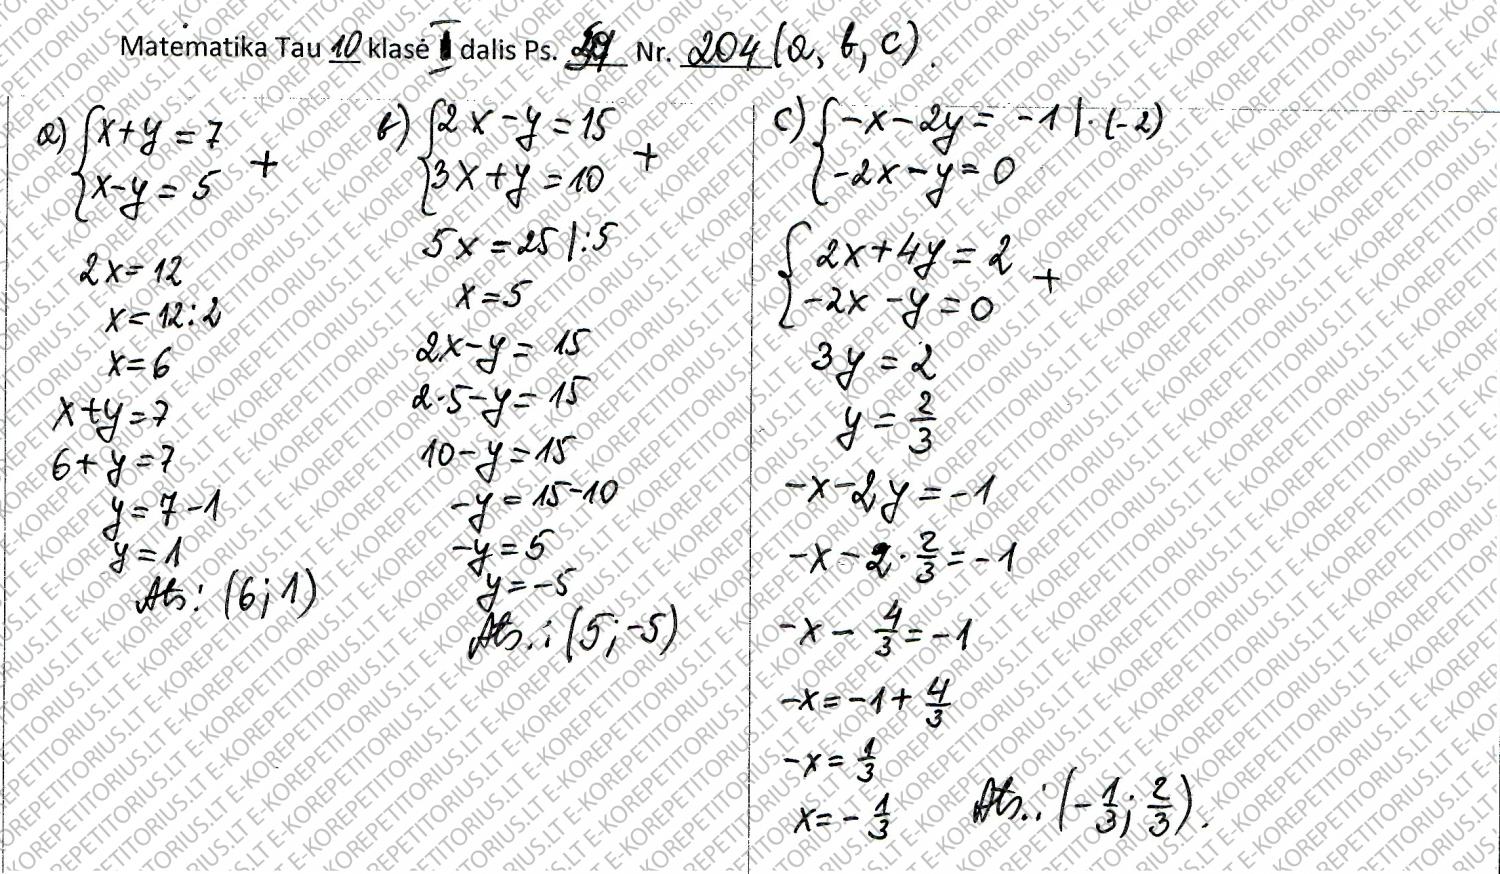 Matematika Tau 10 klasė II dalis Ps. Nr. 204 (a, b, c).
a) { x + y = 7
x - y = 5 +
2x = 12
x = 12 : 2
x = 6
x + y = 7
6 + y = 7
y = 7 - 1
y = 1
Ats: (6; 1)
b) { 2x - y = 15
3x + y = 10 +
5x = 25 | : 5
x = 5
2x - y = 15
2 · 5 - y = 15
10 - y = 15
-y = 15 - 10
-y = 5
y = -5
Ats.: (5; -5)
c) { -x - 2y = -1 | · (-2)
-2x - y = 0
{ 2x + 4y = 2
-2x - y = 0 +
3y = 2
y = 2/3
-x - 2y = -1
-x - 2 · 2/3 = -1
-x - 4/3 = -1
-x = -1 + 4/3
-x = 1/3
x = -1/3
Ats.: (-1/3; 2/3).
E-KOREPETITORIUS.LT